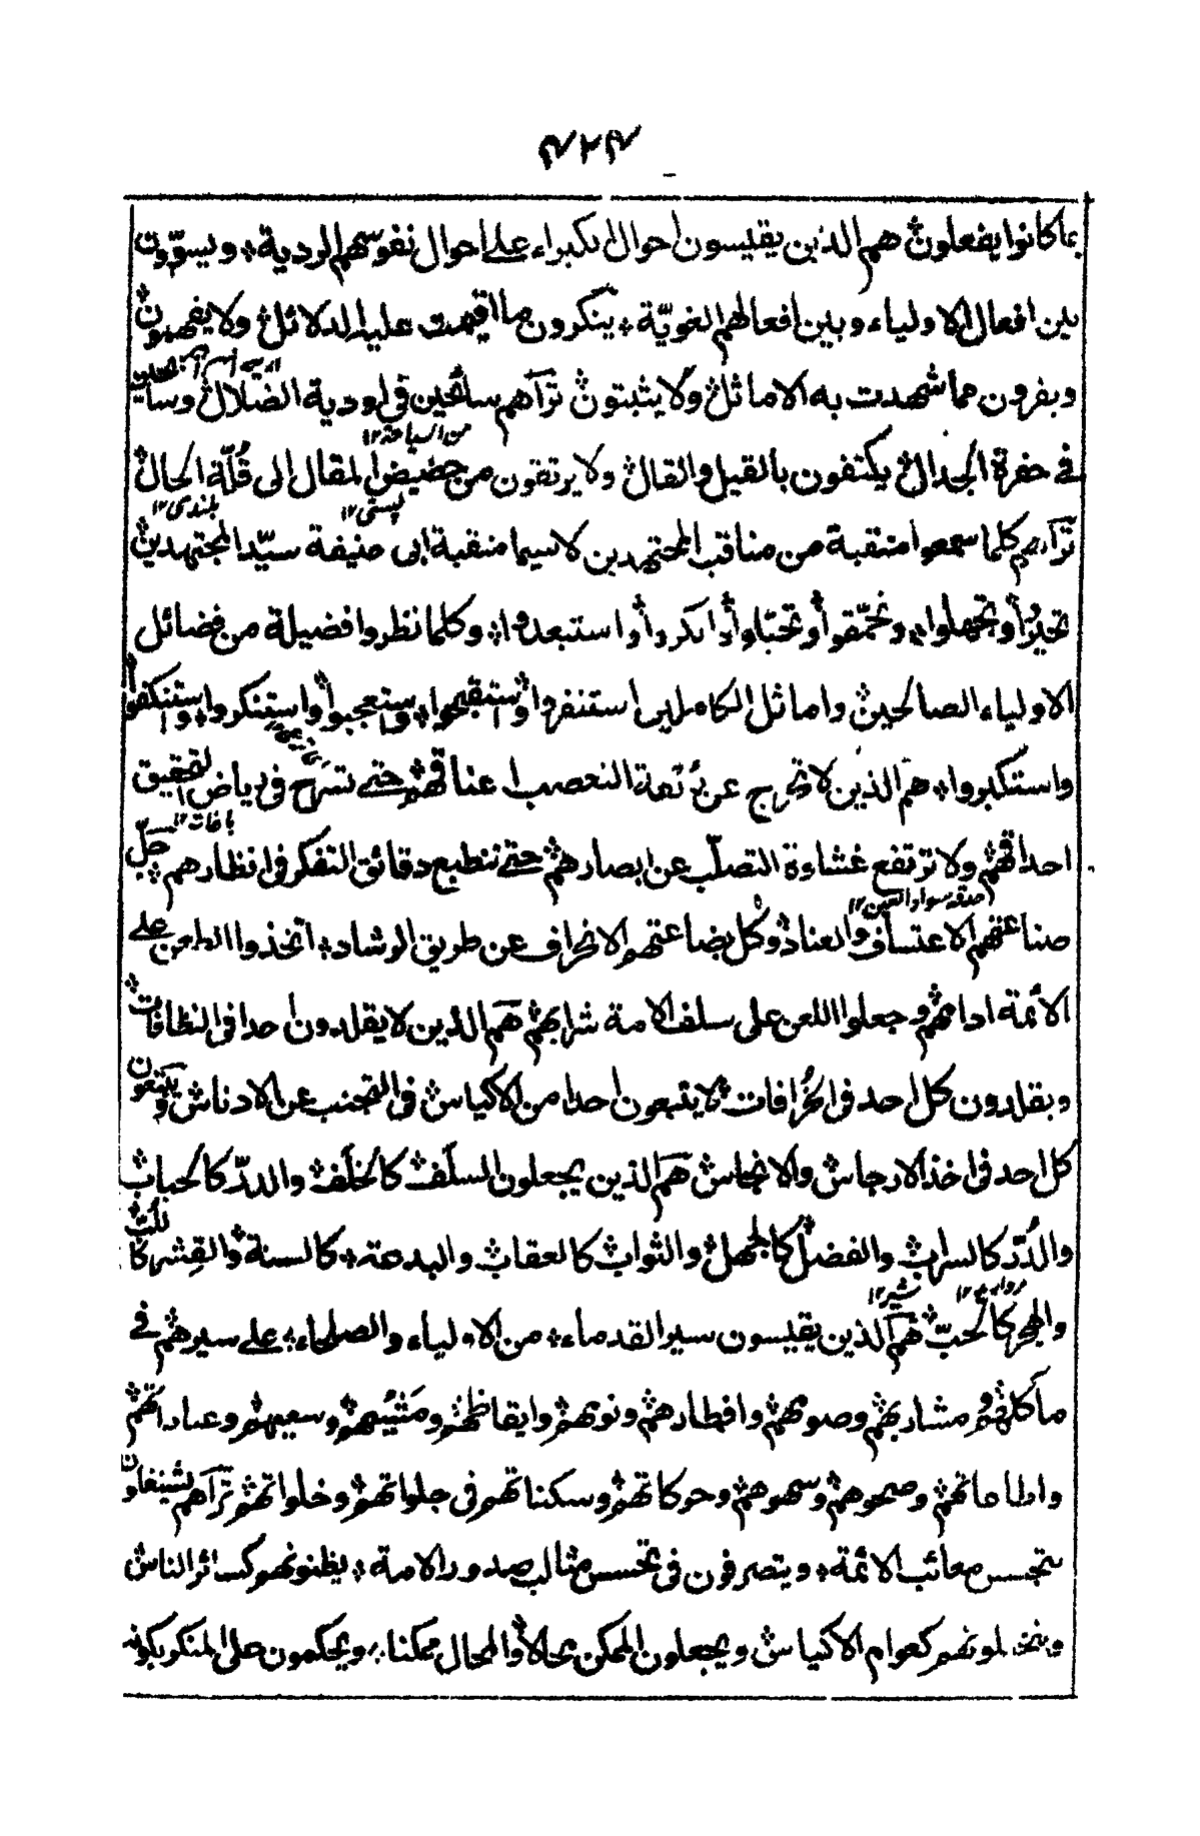 ۴۲۴
بما كانوا يفعلون هم الذين يقيسون احوال الكبراء على احوال نفوسهم الردية ويسوّون
بين افعال الاولياء وبين افعالهم الغويّة ينكرون ما اقيمت عليه الدلائل ولا يفهمون
ويفرون مما شهدت به الاماثل ولا يثبتون تراهم سائحين فى اودية الضلال
من السياحة ١٢
فى حفرة الجدال يكتفون بالقيل والقال ولا يرتقون من حضيض المقال الى قُلّة الحال
پستى ١٢ بلندى ١٢
تراهم كلما سمعوا منقبة من مناقب المجتهدين لا سيما منقبة ابى حنيفة سيّد المجتهدين
او استبعدوا وكلما نظروا فضيلة من فضائل
الاولياء الصالحين واماثل الكاملين استنفروا واستقبحوا واستعجبوا واستنكروا واستنكفوا
واستكبروا هم الذين لا تخرج عن التعصب اعناقهم حتى تسرح فى رياض التحقيق
باغات ١٢
احداقهم ولا ترتفع غشاوة التصلّب عن ابصارهم حتى تنطبع دقائق التفكر فى انظارهم جلّ
حدقه سواد العين ١٢
صناعتهم الاعتساف والعناد وكل بضاعتهم الانحراف عن طريق الرشاد اتخذوا الطعن على
الائمة ادامهم وجعلوا اللعن على سلف الامة شرابهم هم الذين لا يقلدون احدا فى النظافات
ويقلدون كل احد فى الخُرافات لا يتبعون احدا من الاكياس فى التجنب عن الادناس ويتبعون
كل احد فى اخذ الارجاس والانجاس هم الذين يجعلون السلَف كالخلَف والدرّ كالحباب
والدُرّ كالسراب والفضل كالجهل والثواب كالعقاب والبدعة كالسنة والقِشر كاللُبّ
مرواريد ١٢ شير ١٢
والحجر كالحبّ هم الذين يقيسون سير القدماء من الاولياء والصلحاء على سيرهم فى
مأكلهم ومشاربهم وصومهم وافطارهم ونومهم وايقاظهم ومَشْيهم وسعيهم وعباداتهم
واطاعاتهم وصحوهم وسهوهم وحركاتهم وسكناتهم فى جلواتهم وخلواتهم تراهم يشتغلون
بتجسس معائب الائمة ويتصرفون فى تحسس مثالب صدور الامة يظنونهم كسائر الناس
كعوام الاكياس ويجعلون الممكن محالا والمحال ممكنا ويحكمون على المنكر بكونه